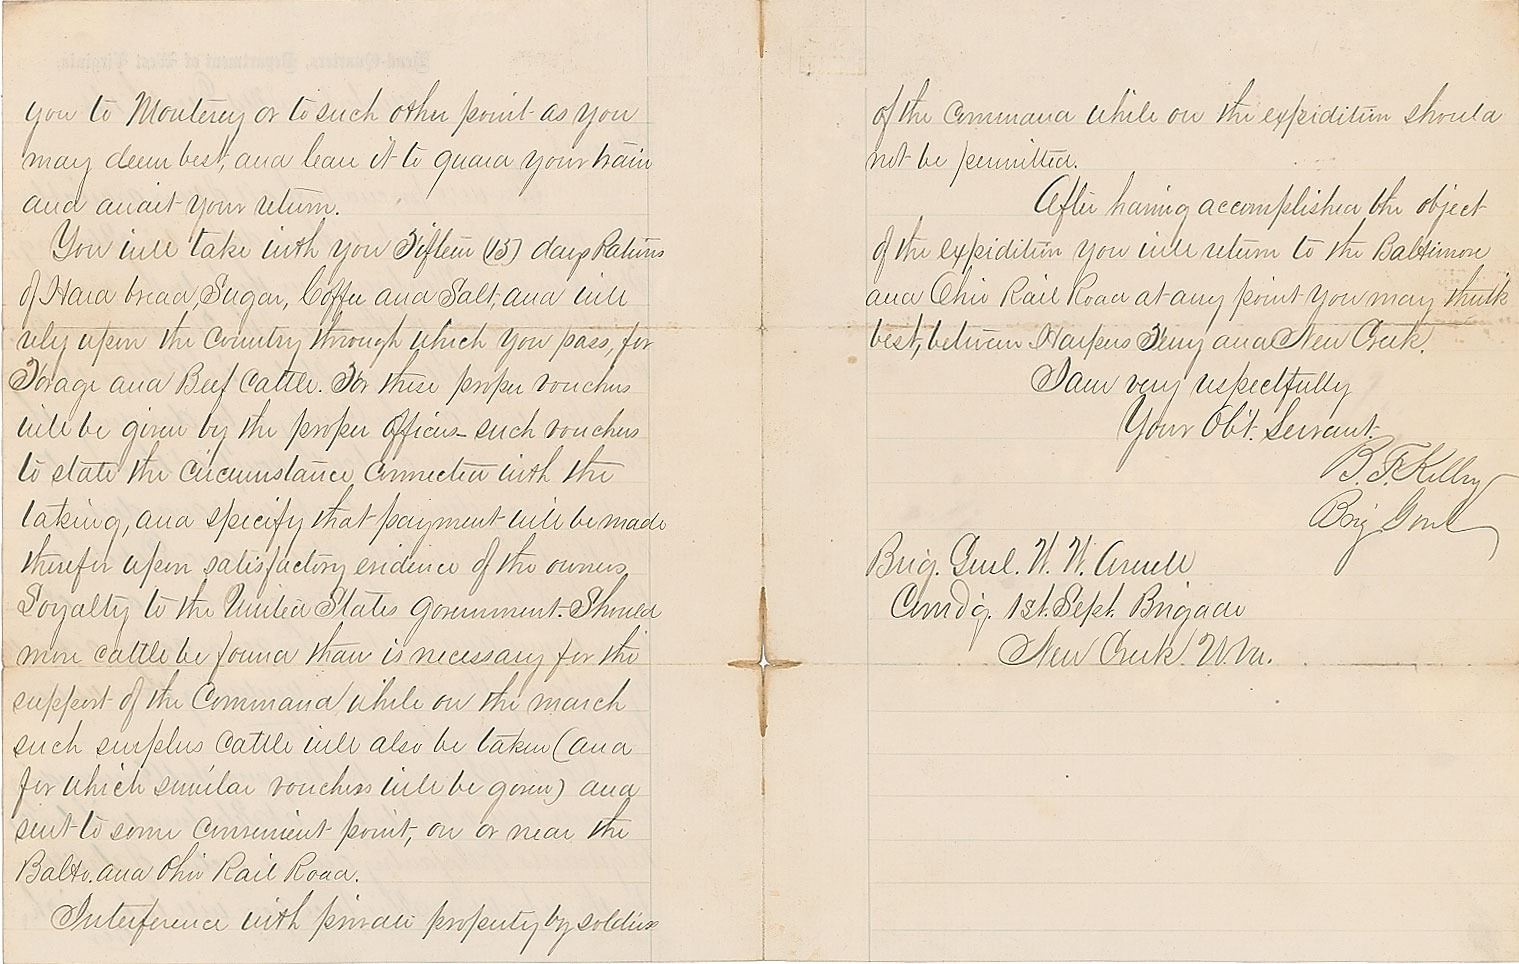 you to Monterey or to such other point as you
may deem best, and leave it to guard your train
and await your return.
You will take with you Fifteen (15) days Rations
of Hard bread, Sugar, Coffee and Salt, and will
rely upon the Country through which you pass, for
Forage and Beef Cattle. For these proper vouchers
will be given by the proper Officers - such vouchers
to state the circumstance connected with the
taking, and specify that payment will be made
therefor upon satisfactory evidence of the owners
Loyalty to the United States Government. Should
more cattle be found than is necessary for the
support of the Command while on the march
such surplus cattle will also be taken (and
for which similar vouchers will be given) and
sent to some convenient point, on or near the
Balto. and Ohio Rail Road.
Interference with private property by soldiers
of the Command while on the expedition should
not be permitted.
After having accomplished the object
of the expedition you will return to the Baltimore
and Ohio Rail Road at any point you may think
best, between Harpers Ferry and New Creek.
I am very respectfully
Your Obt. Servant.
B. F. Kelley
Brig Genl
Brig. Genl. W. W. Averell
Comd'g. 1st. Sept. Brigade
New Creek. W. Va.